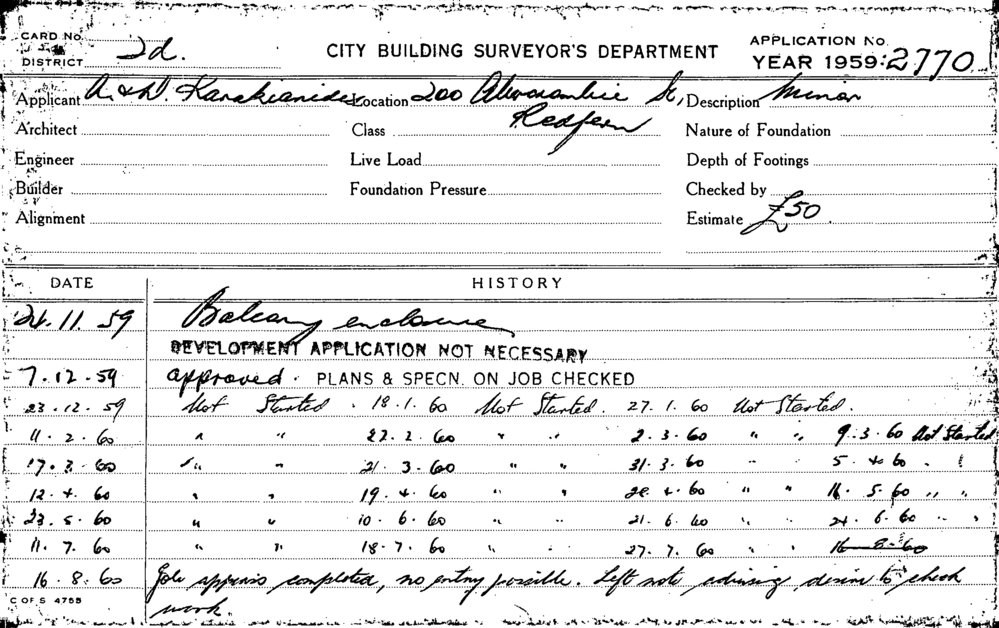 CARD No.
DISTRICT 2d.
CITY BUILDING SURVEYOR'S DEPARTMENT
APPLICATION No.
YEAR 1959: 2770
Applicant A. & D. Karakianides Location 200 Abercrombie St, Redfern Description Minor
Architect Class Nature of Foundation
Engineer Live Load Depth of Footings
Builder Foundation Pressure Checked by
Alignment Estimate £50.
DATE HISTORY
24.11.59 Balcony enclosure
DEVELOPMENT APPLICATION NOT NECESSARY
7.12.59 approved. PLANS & SPECN. ON JOB CHECKED
23.12.59 Not Started. 18.1.60 Not Started. 27.1.60 Not Started.
11.2.60 " " 22.2.60 " " 2.3.60 " " 9.3.60 Not Started
17.3.60 " " 21.3.60 " " 31.3.60 " " 5.4.60 " "
12.4.60 " " 19.4.60 " " 28.4.60 " " 16.5.60 " "
23.5.60 " " 10.6.60 " " 21.6.60 " " 24.6.60 " "
11.7.60 " " 18.7.60 " " 27.7.60 " " 16.8.60
16.8.60 Job appears completed, no entry possible. Left note advising desire to check
work.
C OF S 4755